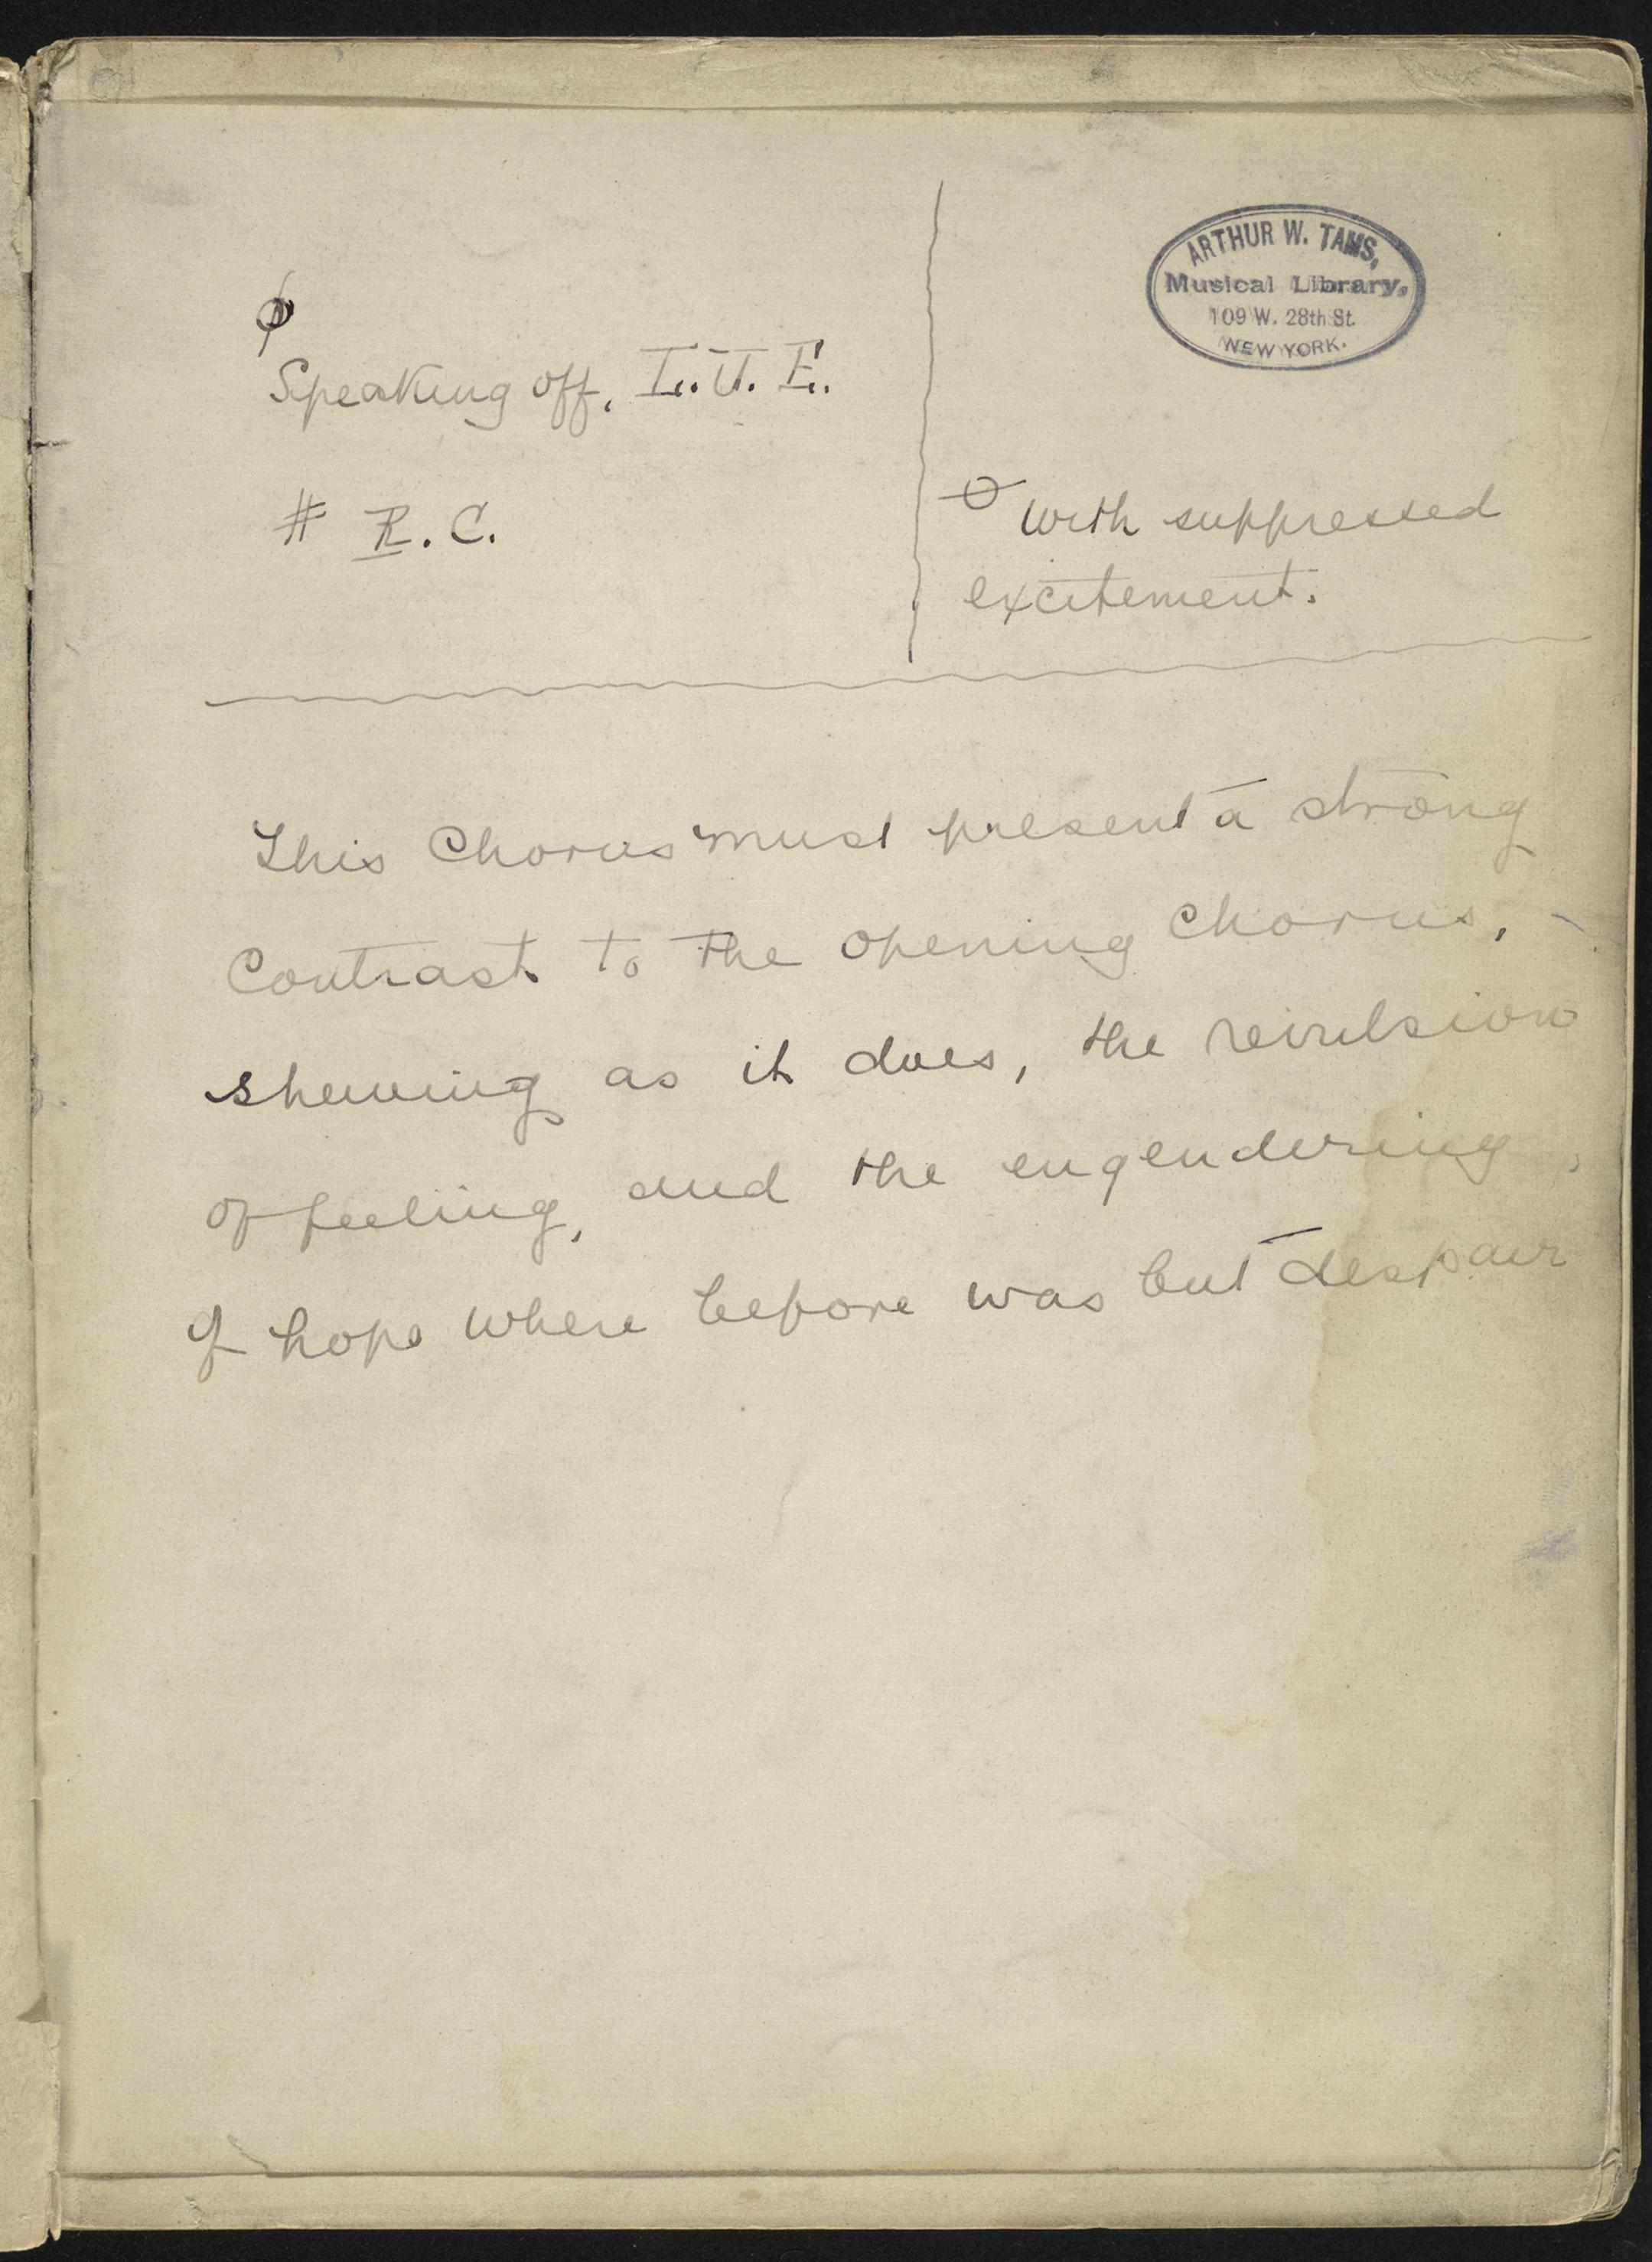 ϕ
Speaking off, L.U.E.
# R.C.
ARTHUR W. TAMS,
Musical Library,
109 W. 28th St.
NEW YORK.
ϕ with suppressed
excitement.
This Chorus must present a strong
Contrast to the opening Chorus,
shewing as it does, the revulsion
of feeling, and the engendering
of hope where before was but despair